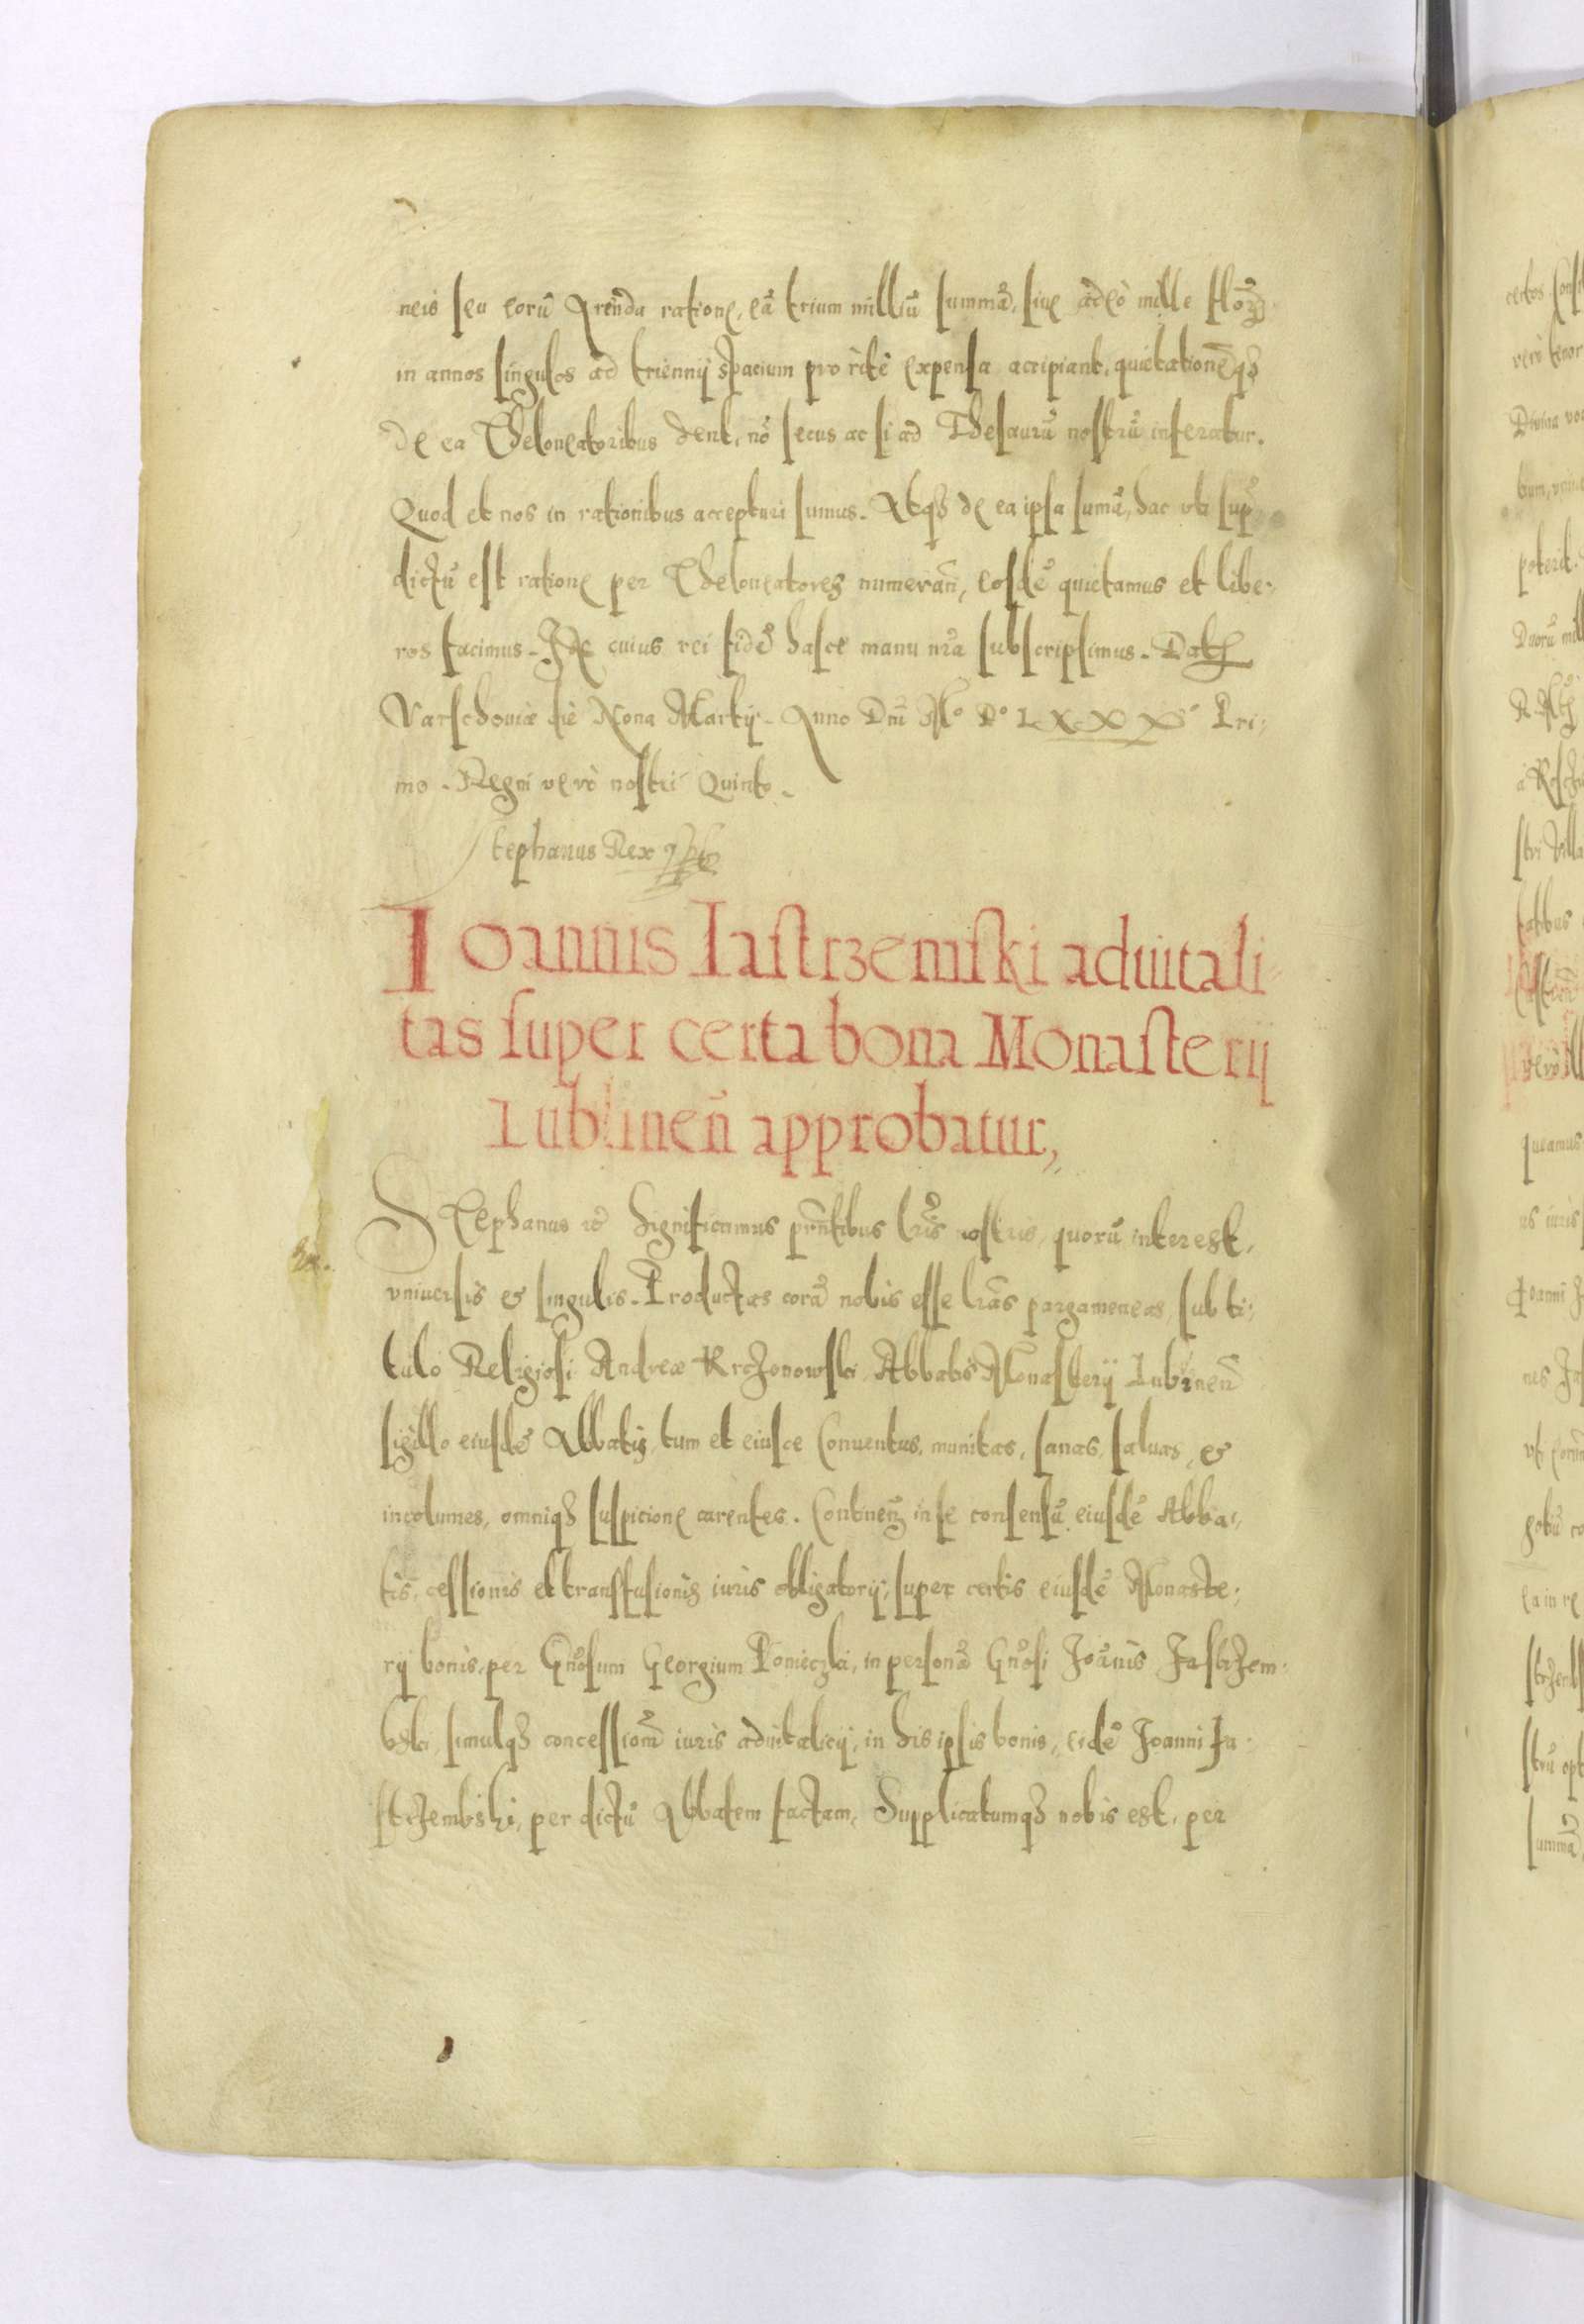 neis seu eorũ Arenda ratione, eã trium milliũ summã, siue adeò mille floz
in annos singulos ad triennij spacium pro ritè expensa accipiant, quietationẽqz
de ea Theloneatoribus dent, nõ secus ac si ad Thesaurũ nostrũ inferatur.
Quod et nos in rationibus accepturi sumus. Atqz de ea ipsa sumã, hac vti sup
dictũ est ratione per Theloneatores numeran̄, eosdẽ quietamus et libe-
ros facimus. In cuius rei fidẽ hasce manu nr̃a subscripsimus. Dat
Varschouiæ die Nona Martij. Anno Dn̄i Mº Dº LXXXº Pri-
mo. Regni verò nostri Quinto.
Stephanus Rex
Ioannis Iastrzemski aduitali-
tas super certa bona Monasterij
Lublinen̄ approbatur,
Stephanus etc Significamus pr̃ntibus lr̃is nostris, quorũ interest,
vniuersis & singulis. Productas corã nobis esse lr̃as pargameneas, sub ti-
tulo Religiosi Andreæ Krczonowski Abbatis Monasterij Lubinen̄
sigillo eiusdẽ Abbatis, tum et eiusce Conuentus, munitas, sanas, saluas, &
incolumes, omniqz suspicione carentes. Continen̄ in se consensũ eiusdẽ Abba-
tis, cessionis et transfusionis iuris obligatorij, super certis eiusdẽ Monaste-
rij bonis, per Gn̄osum Georgium Ponieczki, in personã Gn̄osi Joãnis Jastrzem-
bski, simulqz concessionẽ iuris aduitalicij, in his ipsis bonis, eidẽ Joanni Ja-
strzembski, per dictũ Abbatem factam. Supplicatumqz nobis est, per